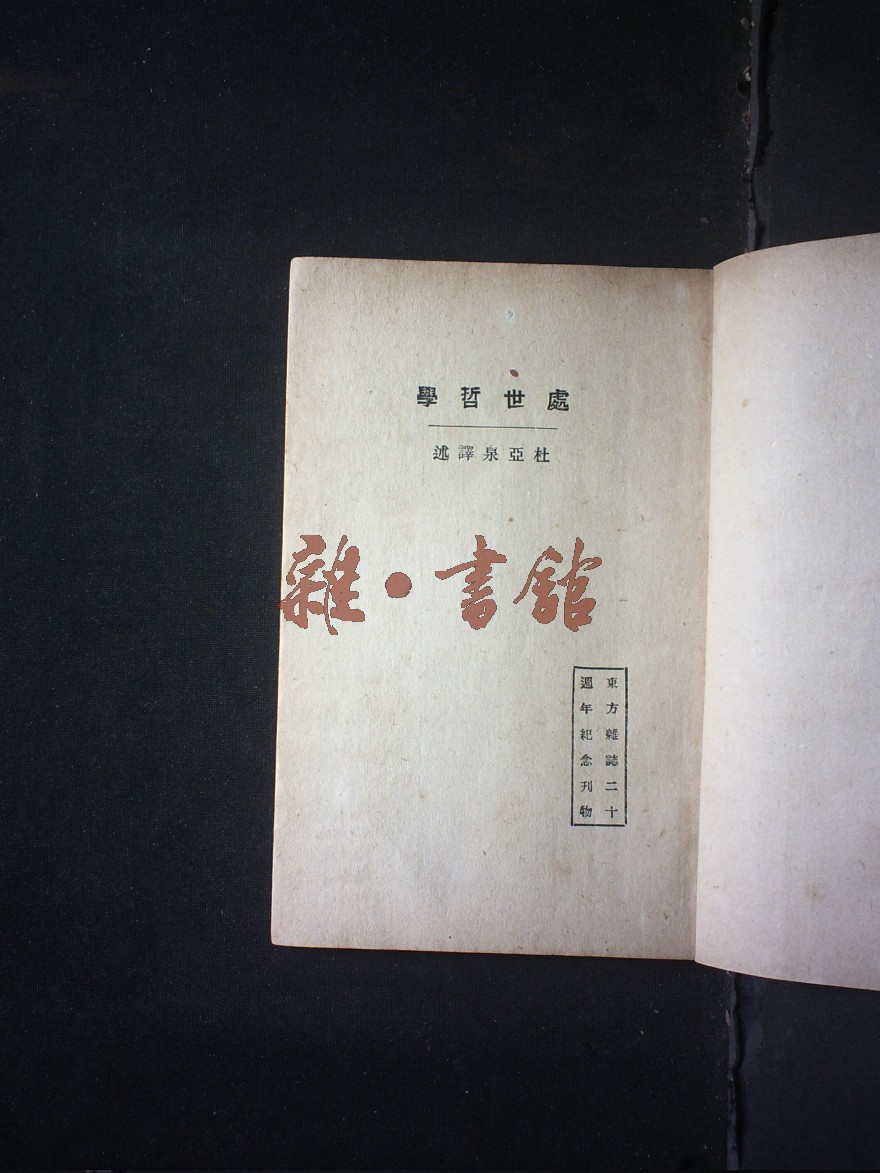 處世哲學
杜亞泉譯述
雜·書館
東方雜誌二十
週年紀念刊物